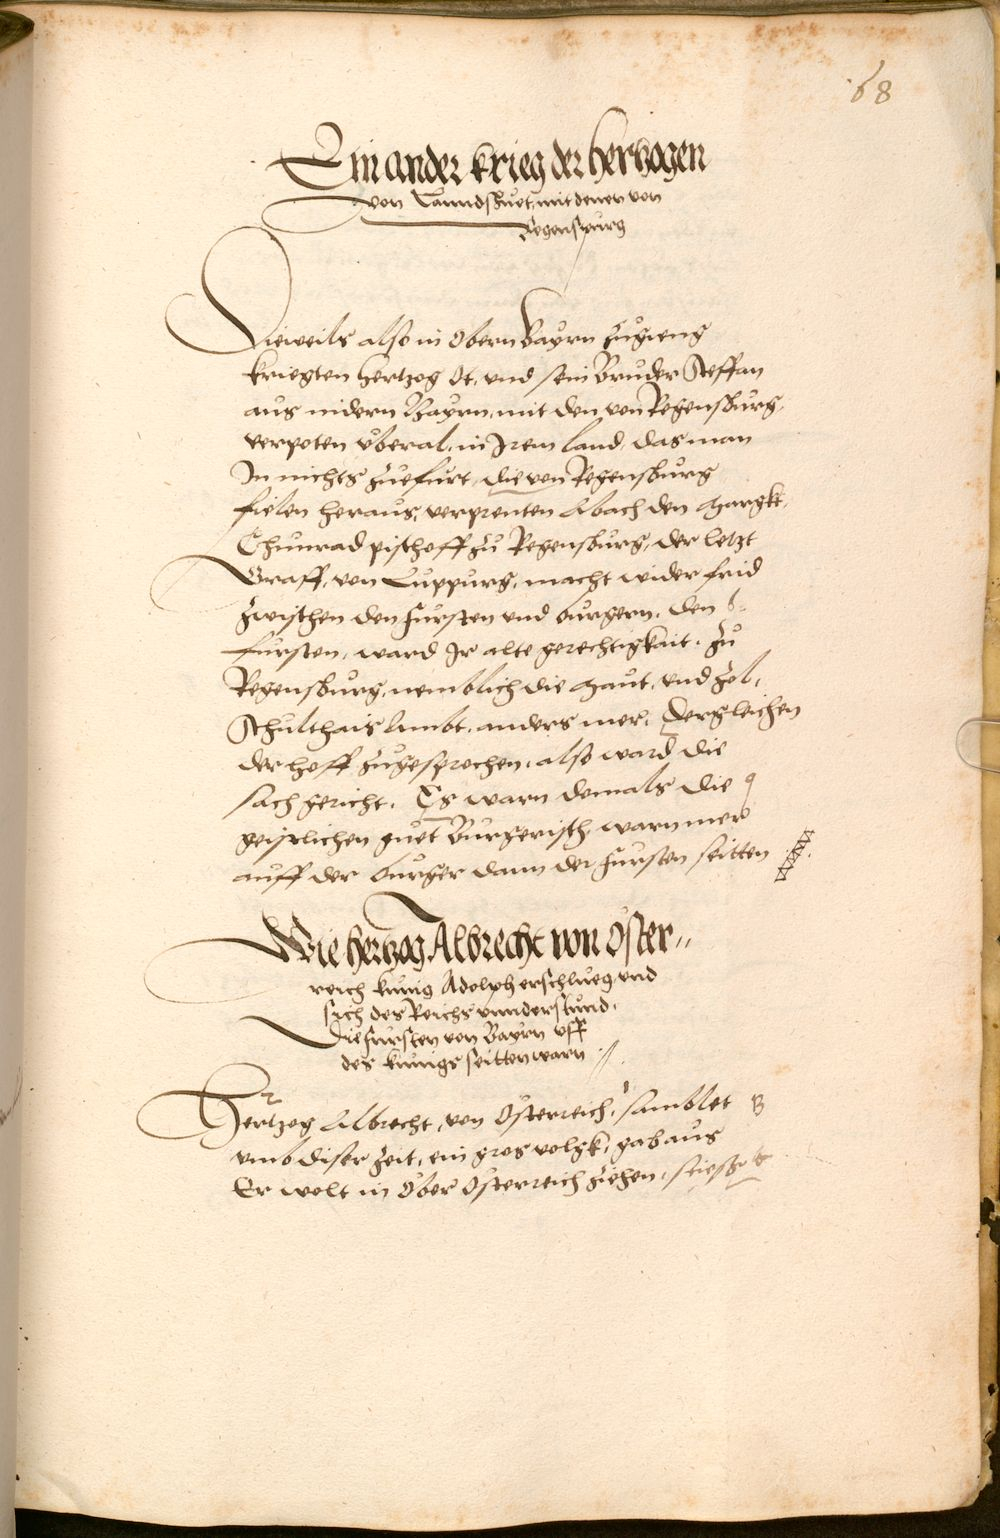 68
Ein ander krieg der hertzogen
von Lanndshuet, mit denen von
Regenspurg
Dieweils also in Obern Bayrn zugieng
kriegten hertzog Ot, und sein Bruder Steffan
aus nidern Bayrn, mit den von Regensburg,
verpoten überal, in Irem land, das man
In nichts zuefürt, die von Regensburg
fielen heraus, verprenten Abach den Margkt,
Chunrad pischoff zu Regensburg, der letzt
Graff, von Luppurg, macht wider frid
zwischen den Fürsten und burgern. den
fürsten, ward Ir alte gerechtigkait, zu
Regensburg, nemblich die Maut, und Zol,
Schulthais Ambt, anders mer, Dergleichen
der hoff zugesprochen, also ward die
sach gericht. Es warn domals die
geistlichen guet Burgerisch, warn mer
auff der burger dann der Fürsten seitten
Wie hertzog Albrecht von Öster-
reich künig Adolph erschlueg und
sich des Reichs unnderstund,
Die fürsten von Bayrn uff
des künigs seitten warn
Hertzog Albrecht, von Österreich, samblet
umb diser Zeit, ein gros volgk, gab aus
Er wolt in Ober Österreich ziehen,